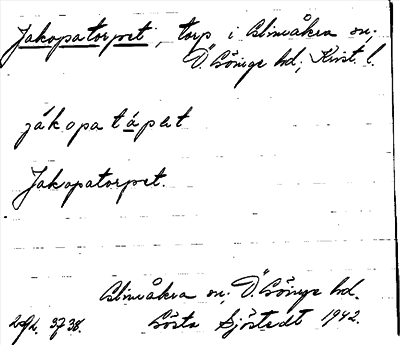 Jakopatorpet, torp i Glimåkra sn;
Ö. Göinge hd; Krist. l.
jákopatápet
Jakopatorpet.
Glimåkra sn; Ö. Göinge hd.
Gösta Sjöstedt 1942.